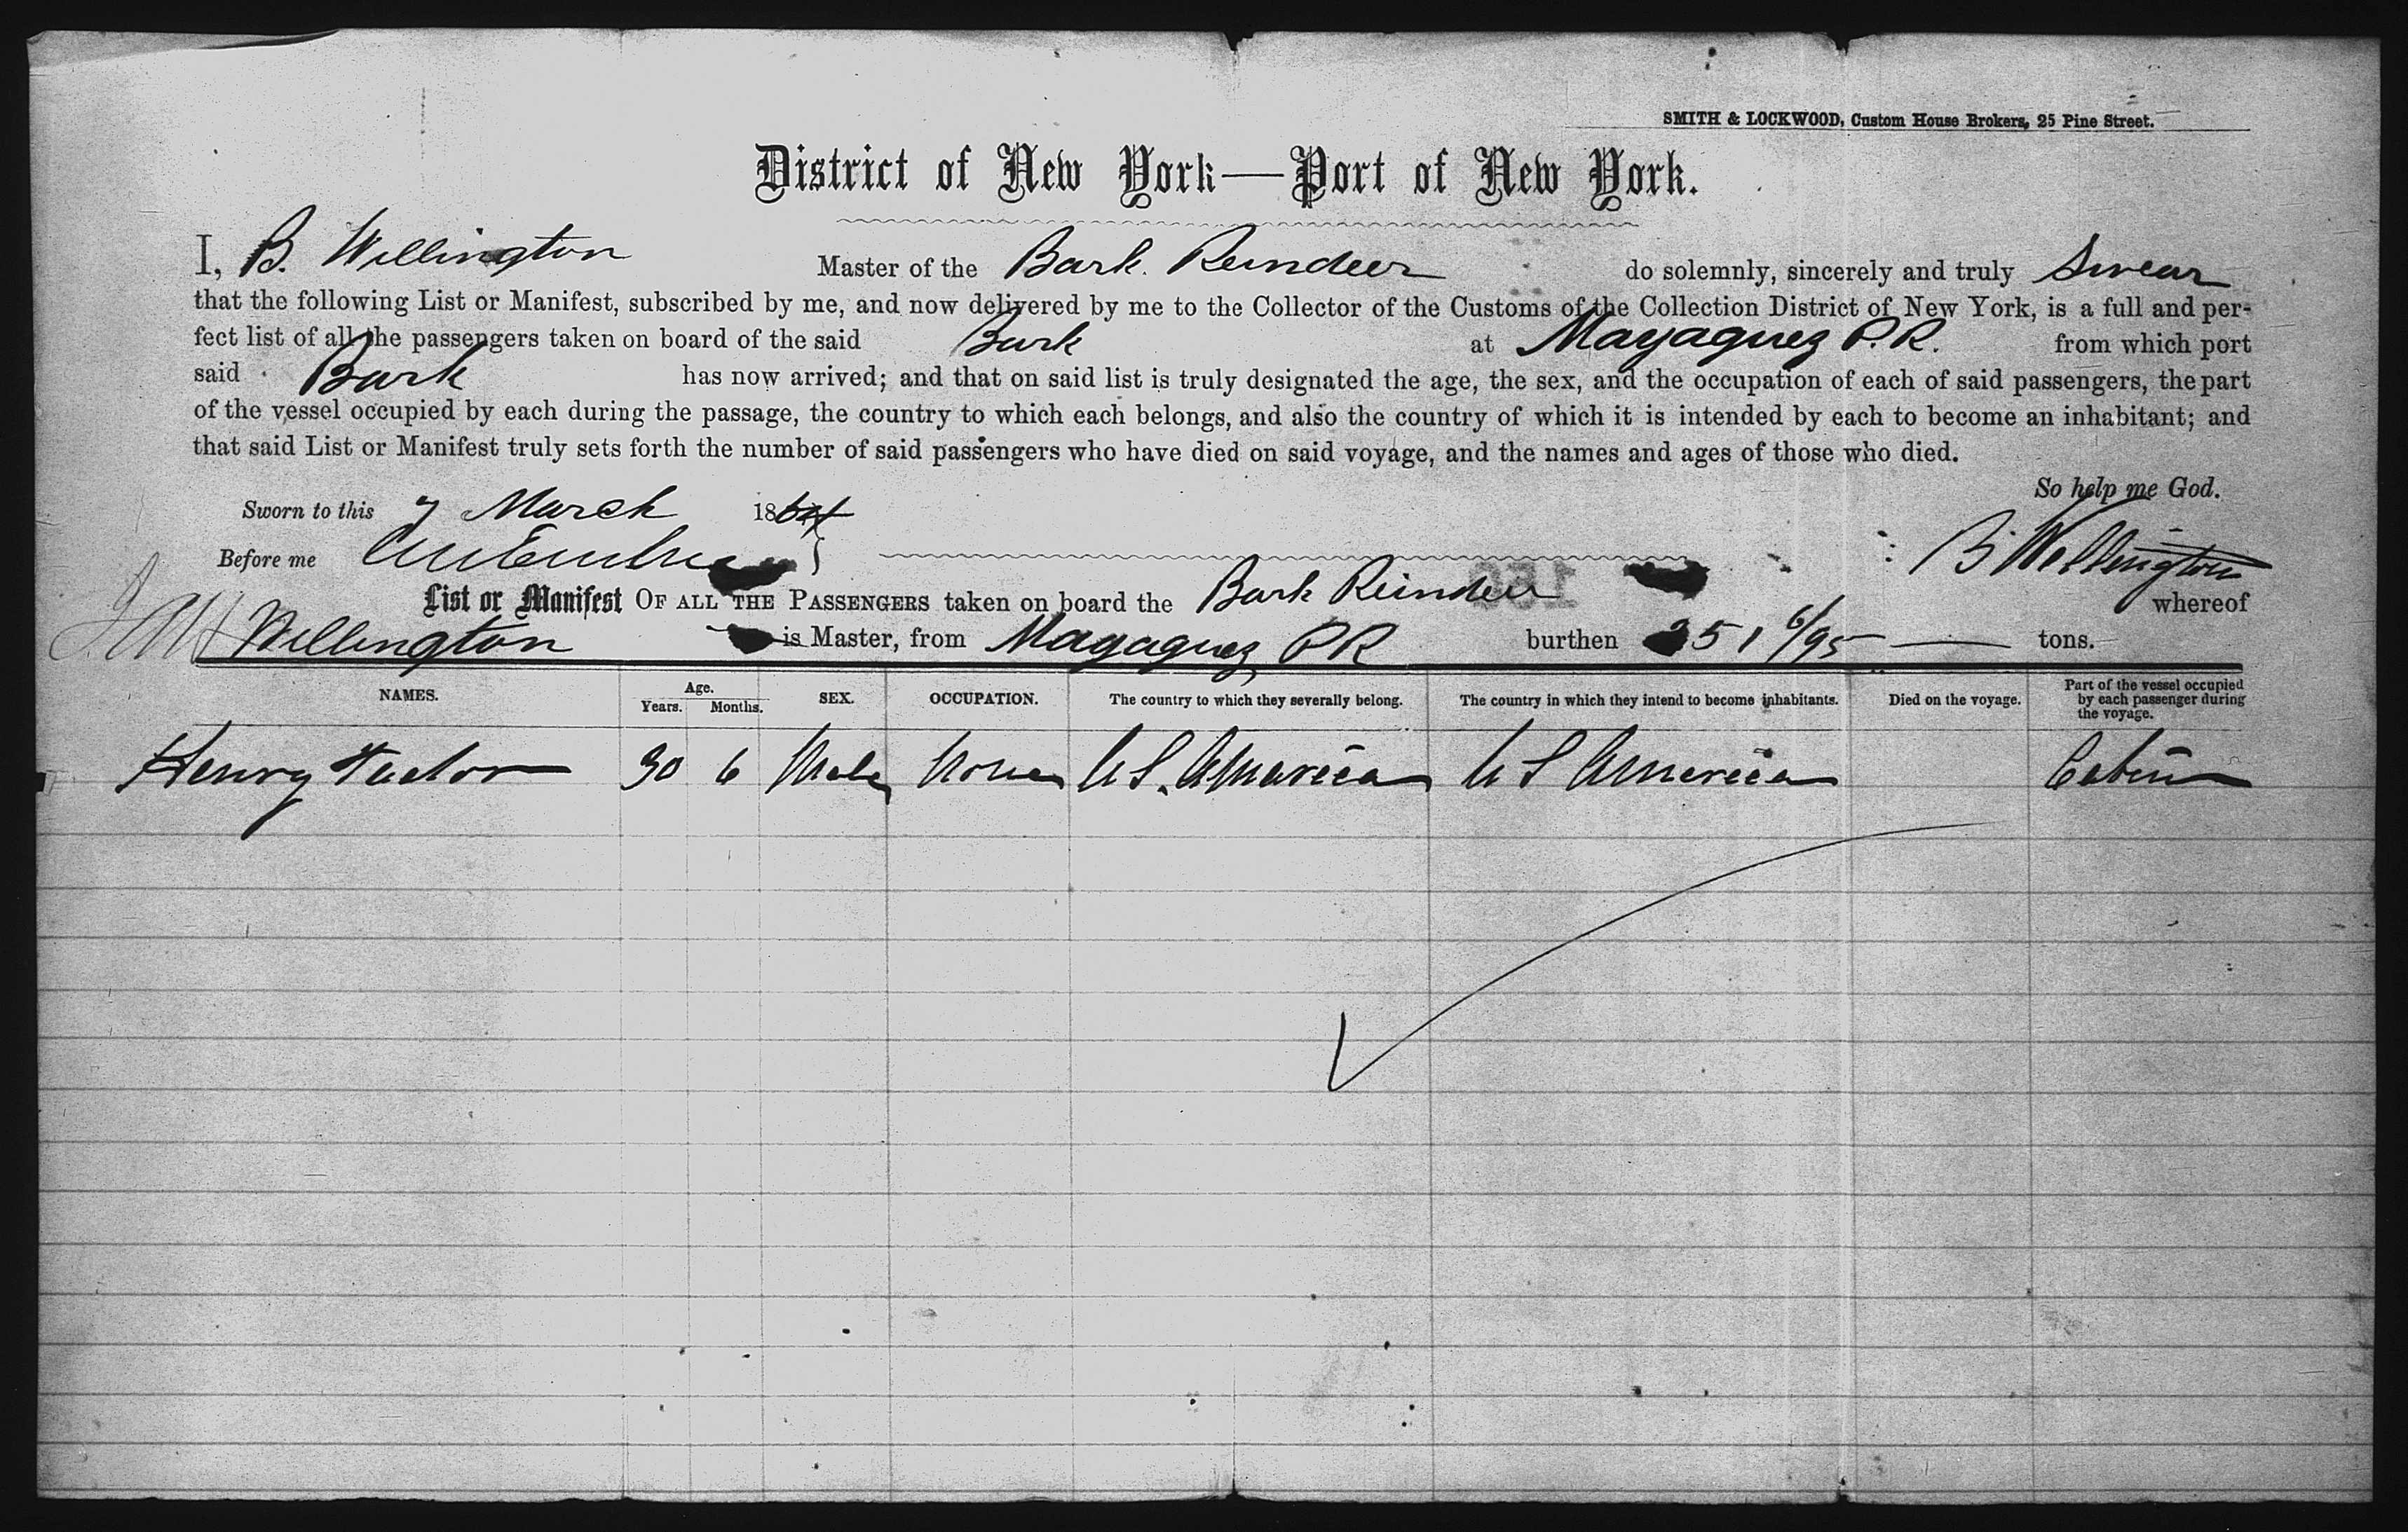 SMITH & LOCKWOOD, Custom House Brokers, 25 Pine Street.
District of New York—Port of New York.
I, B. Wellington Master of the Bark Reindeer do solemnly, sincerely and truly Swear
that the following List or Manifest, subscribed by me, and now delivered by me to the Collector of the Customs of the Collection District of New York, is a full and per-
fect list of all the passengers taken on board of the said Bark at Mayaguez P.R. from which port
said Bark has now arrived; and that on said list is truly designated the age, the sex, and the occupation of each of said passengers, the part
of the vessel occupied by each during the passage, the country to which each belongs, and also the country of which it is intended by each to become an inhabitant; and
that said List or Manifest truly sets forth the number of said passengers who have died on said voyage, and the names and ages of those who died.
So help me God.
Sworn to this 7 March 1864
Before me
B. Wellington
List or Manifest OF ALL THE PASSENGERS taken on board the Bark Reindeer whereof
Wellington is Master, from Mayaguez PR burthen 351 6/95 tons.
NAMES. Age. Years. Months. SEX. OCCUPATION. The country to which they severally belong. The country in which they intend to become inhabitants. Died on the voyage. Part of the vessel occupied by each passenger during the voyage.
Henry Tudor 30 6 Male None U S. America U S America Cabin